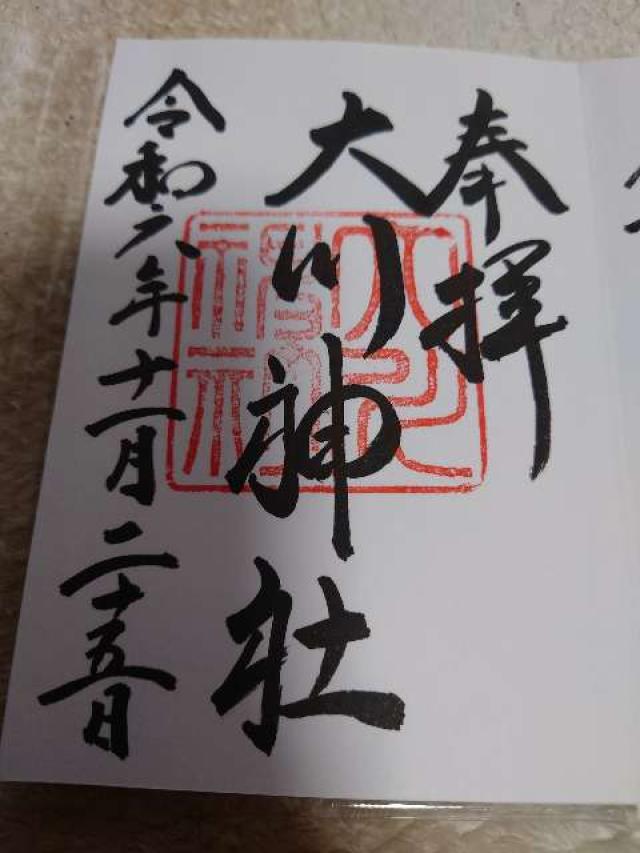 奉拝
大川神社
令和六年十一月二十五日